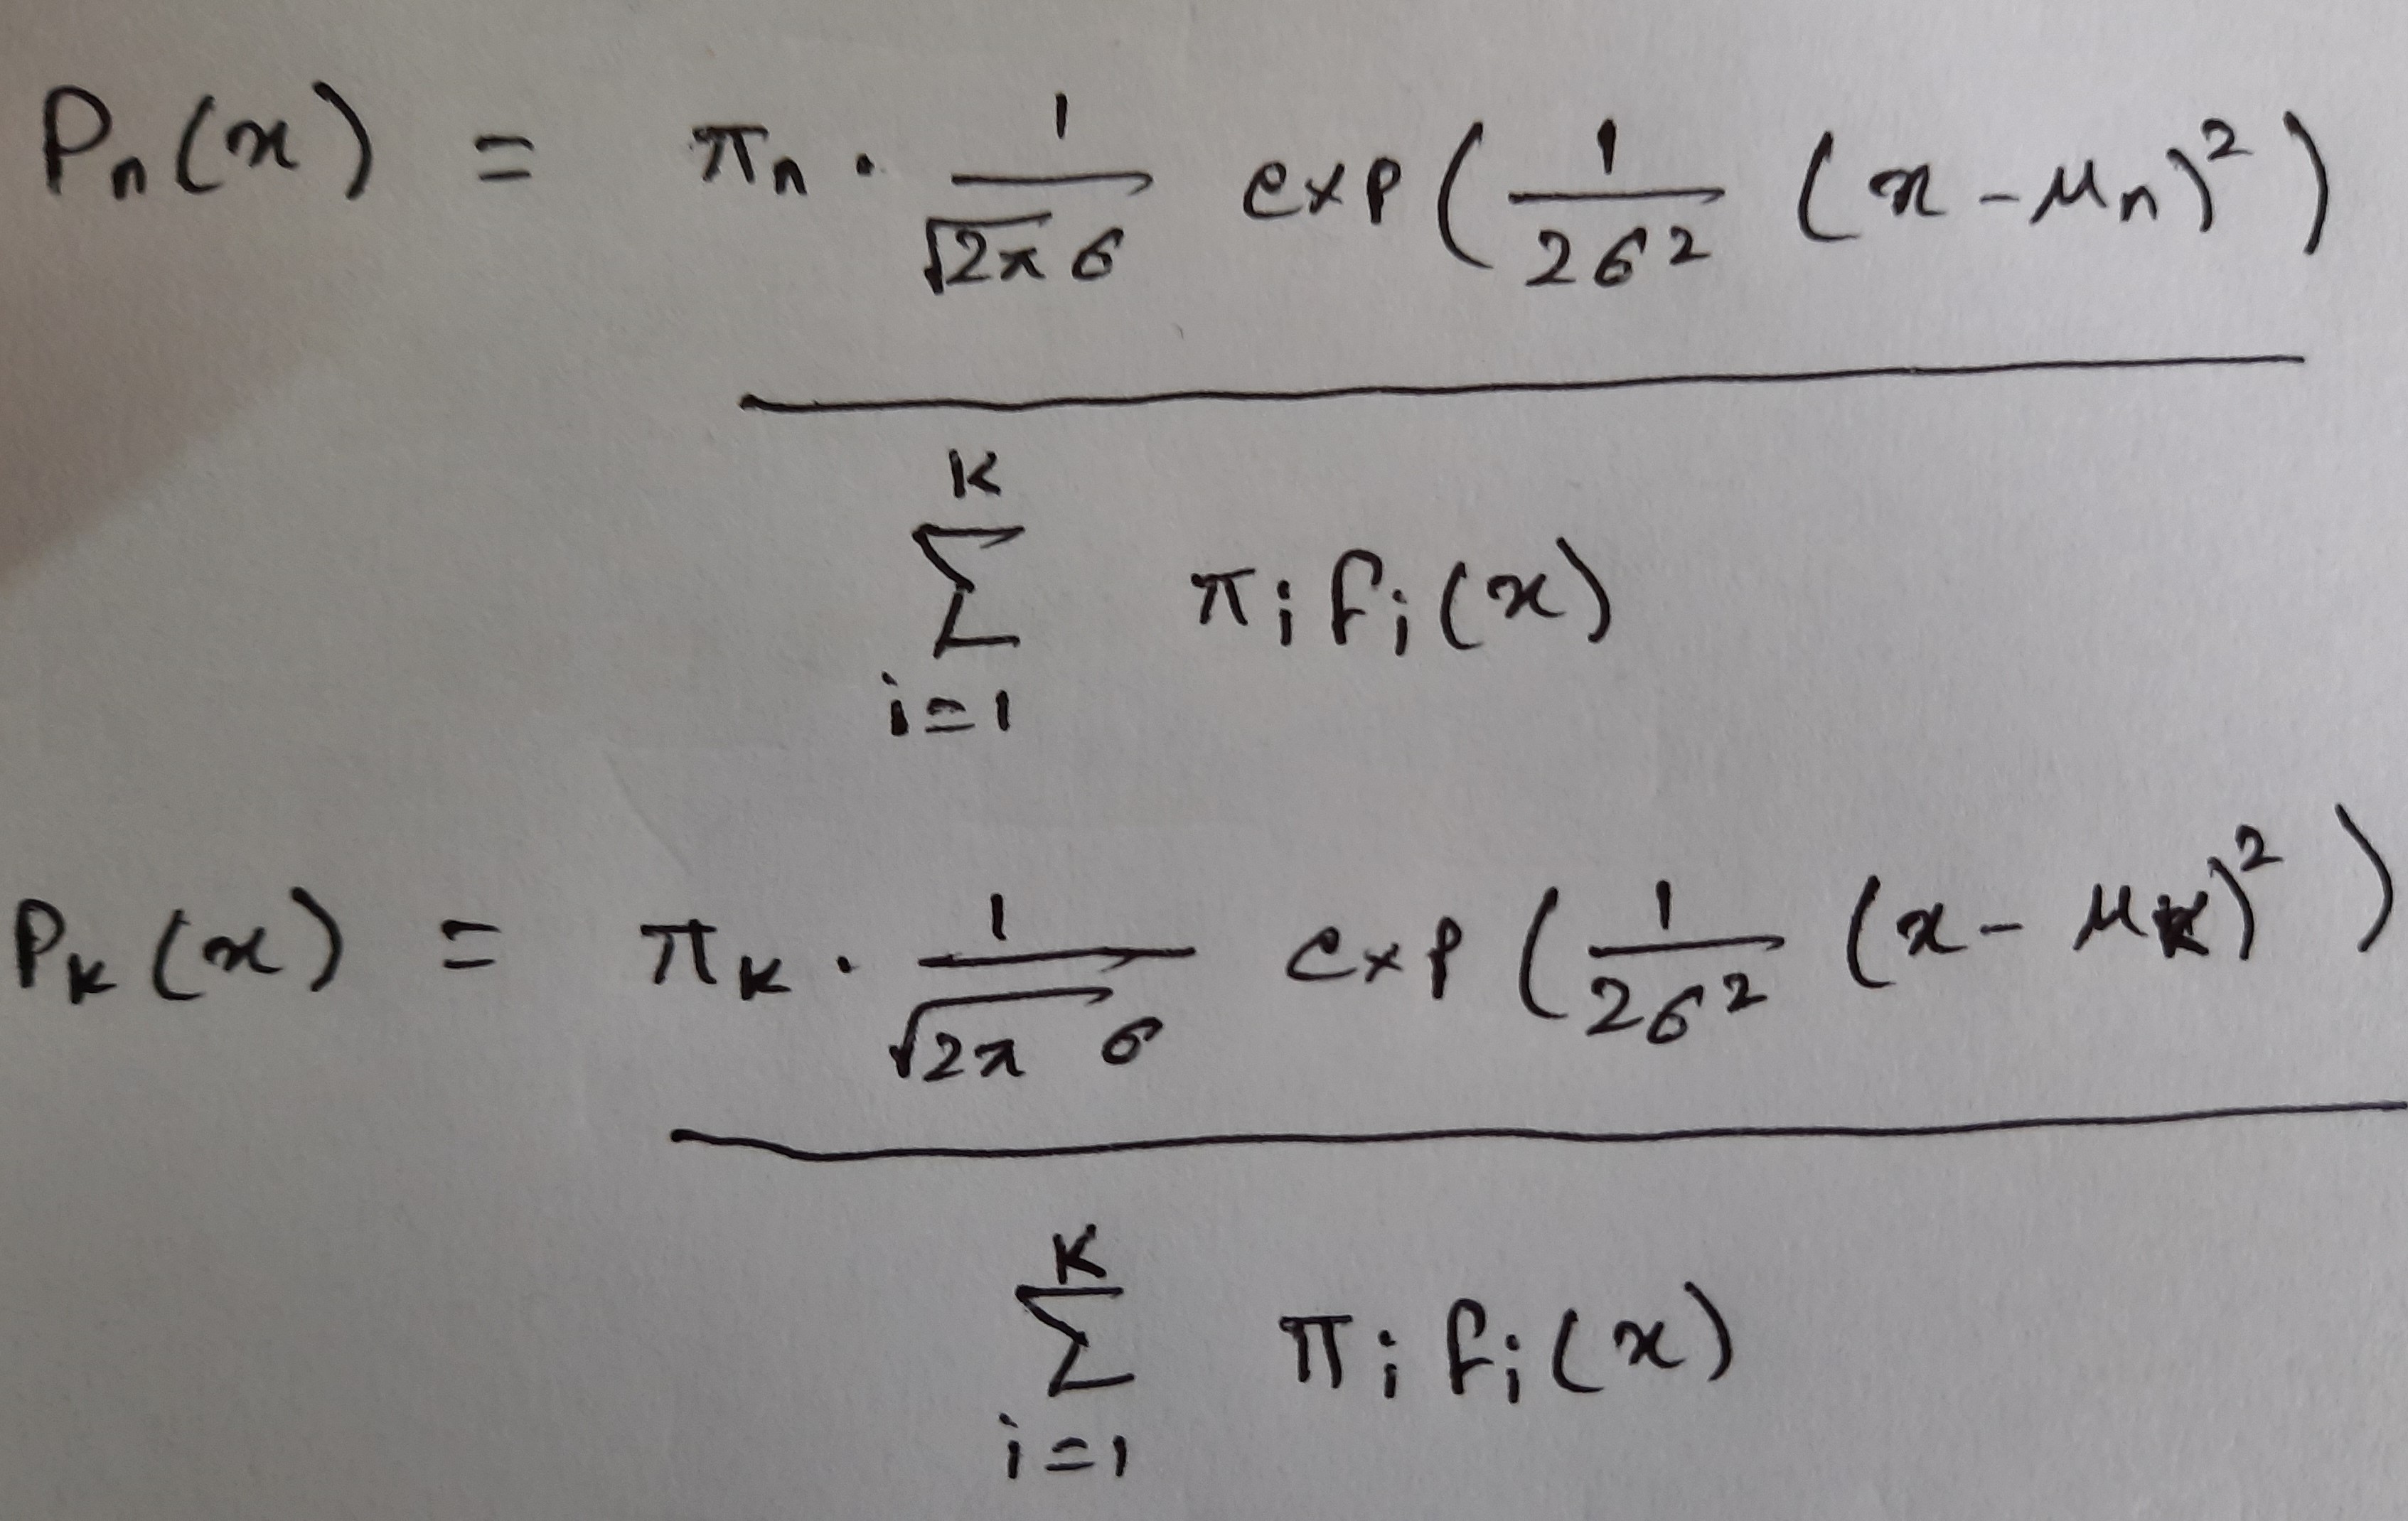 Pₙ(x) = πₙ · 1/(√2π σ) exp(1/(2σ²) (x-μₙ)²)
K
Σ πᵢ fᵢ(x)
i=1
Pₖ(x) = πₖ · 1/(√2π σ) exp(1/(2σ²) (x-μₖ)²)
K
Σ πᵢ fᵢ(x)
i=1